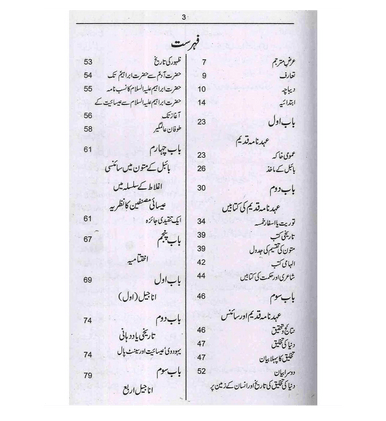 3
فہرست
عرض مترجم 7
تعارف 9
دیباچہ 10
ابتدائیہ 14
باب اول 23
عہد نامہ قدیم
عمومی خاکہ 23
بائبل کے ماخذ 26
باب دوم 30
عہد نامہ قدیم کی کتابیں
توریت یا اسفار خمسہ 34
تاریخی کتب 39
متون کی تقسیم کی جدول 39
الہامی کتب 42
شاعری اور حکمت کی کتابیں 44
باب سوم 46
عہد نامہ قدیم اور سائنس
نتائج و تحقیق 46
دنیا کی تخلیق 47
تخلیق کا پہلا بیان 47
دوسرا بیان 52
دنیا کی تخلیق کی تاریخ اور انسان کے زمین پر
ظہور کی تاریخ 53
حضرت آدم سے حضرت ابراہیم تک 54
حضرت ابراہیم علیہ السلام کا نسب نامہ 55
حضرت ابراہیم علیہ السلام سے عیسائیت کے
آغاز تک 56
طوفان عالمگیر 58
باب چہارم 61
بائبل کے متون میں سائنسی
اغلاط کے سلسلہ میں
عیسائی مصنفین کا نظریہ
ایک تنقیدی جائزہ 61
باب پنجم 67
اختتامیہ
باب اول 69
اناجیل (اول)
باب دوم 74
تاریخی یاد دہانی
یہودوی عیسائیت اور سینٹ پال 74
باب سوم 79
اناجیل اربع